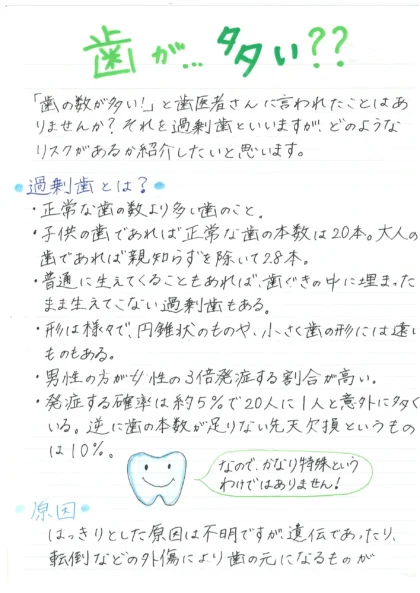 歯が…多い??
「歯の数が多い!」と歯医者さんに言われたことはあ
りませんか?それを過剰歯といいますが、どのような
リスクがあるか紹介したいと思います。
過剰歯とは?
・正常な歯の数より多い歯のこと。
・子供の歯であれば正常な歯の本数は20本。大人の
歯であれば親知らずを除いて28本。
・普通に生えてくることもあれば、歯ぐきの中に埋まった
まま生えてこない過剰歯もある。
・形は様々で、円錐状のものや、小さく歯の形には遠い
ものもある。
・男性の方が女性の3倍発症する割合が高い。
・発症する確率は約5%で20人に1人と意外に多く
いる。逆に歯の本数が足りない先天欠損というもの
は10%。
なので、かなり特殊という
わけではありません!
原因
はっきりとした原因は不明ですが、遺伝であったり、
転倒などの外傷により歯の元になるものが